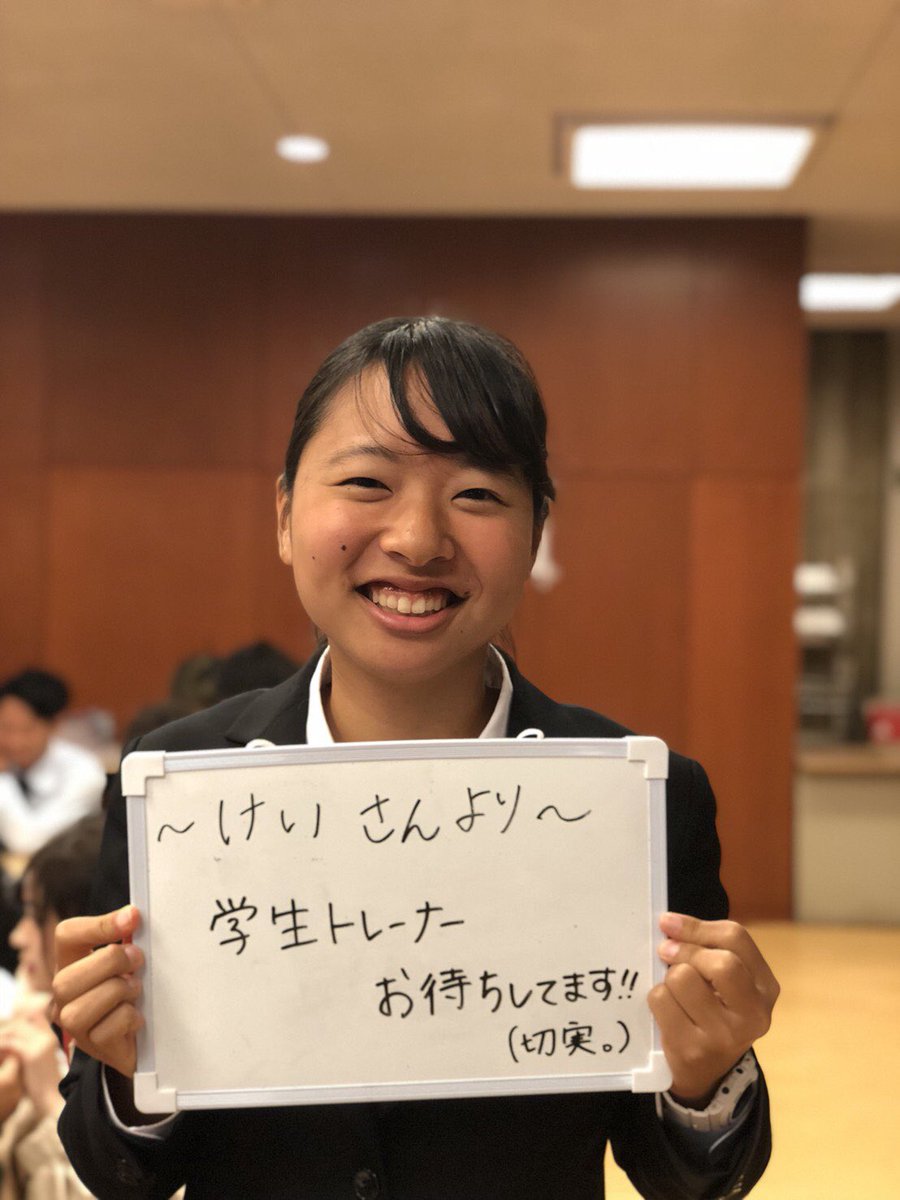 ～けいさんより～
学生トレーナー
お待ちしてます!!
(切実。)